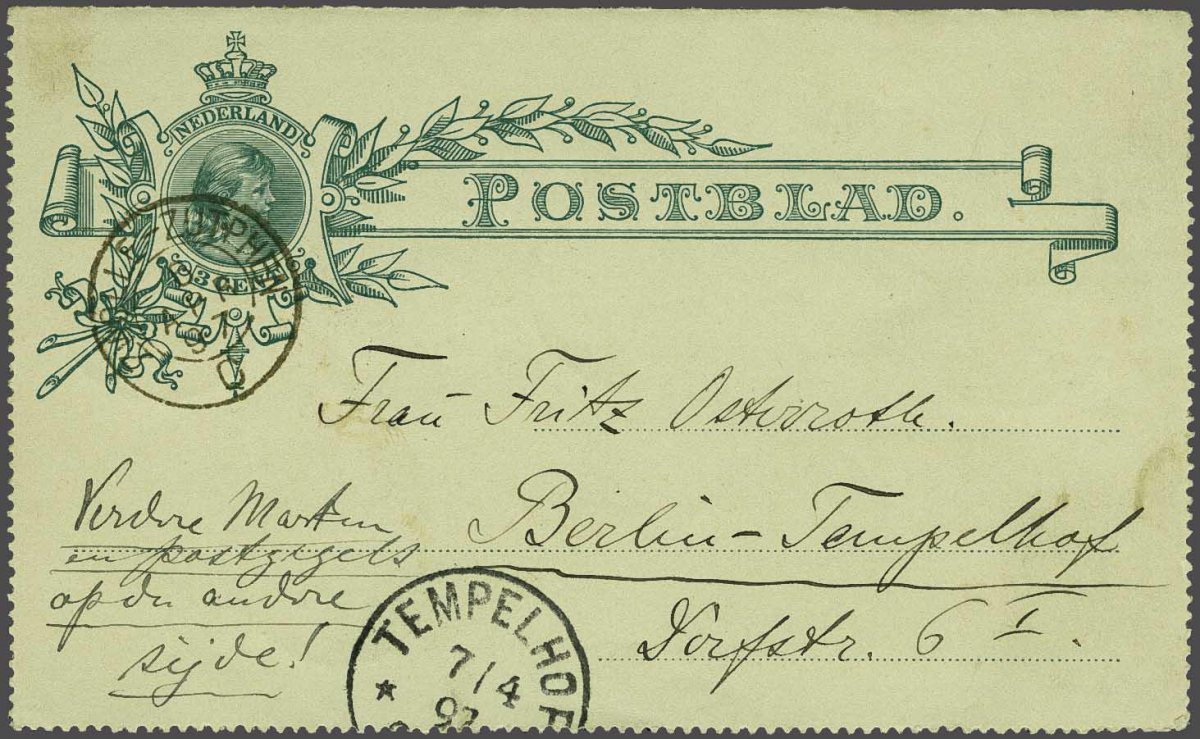 NEDERLAND
POSTBLAD.
3 CENT
ZUTPHEN
Frau Fritz Osterroth.
Berlin-Tempelhof
Dorfstr. 6 I.
Verdere Marken
en postzigels
op de andere
sijde!
TEMPELHOF
7/4
97